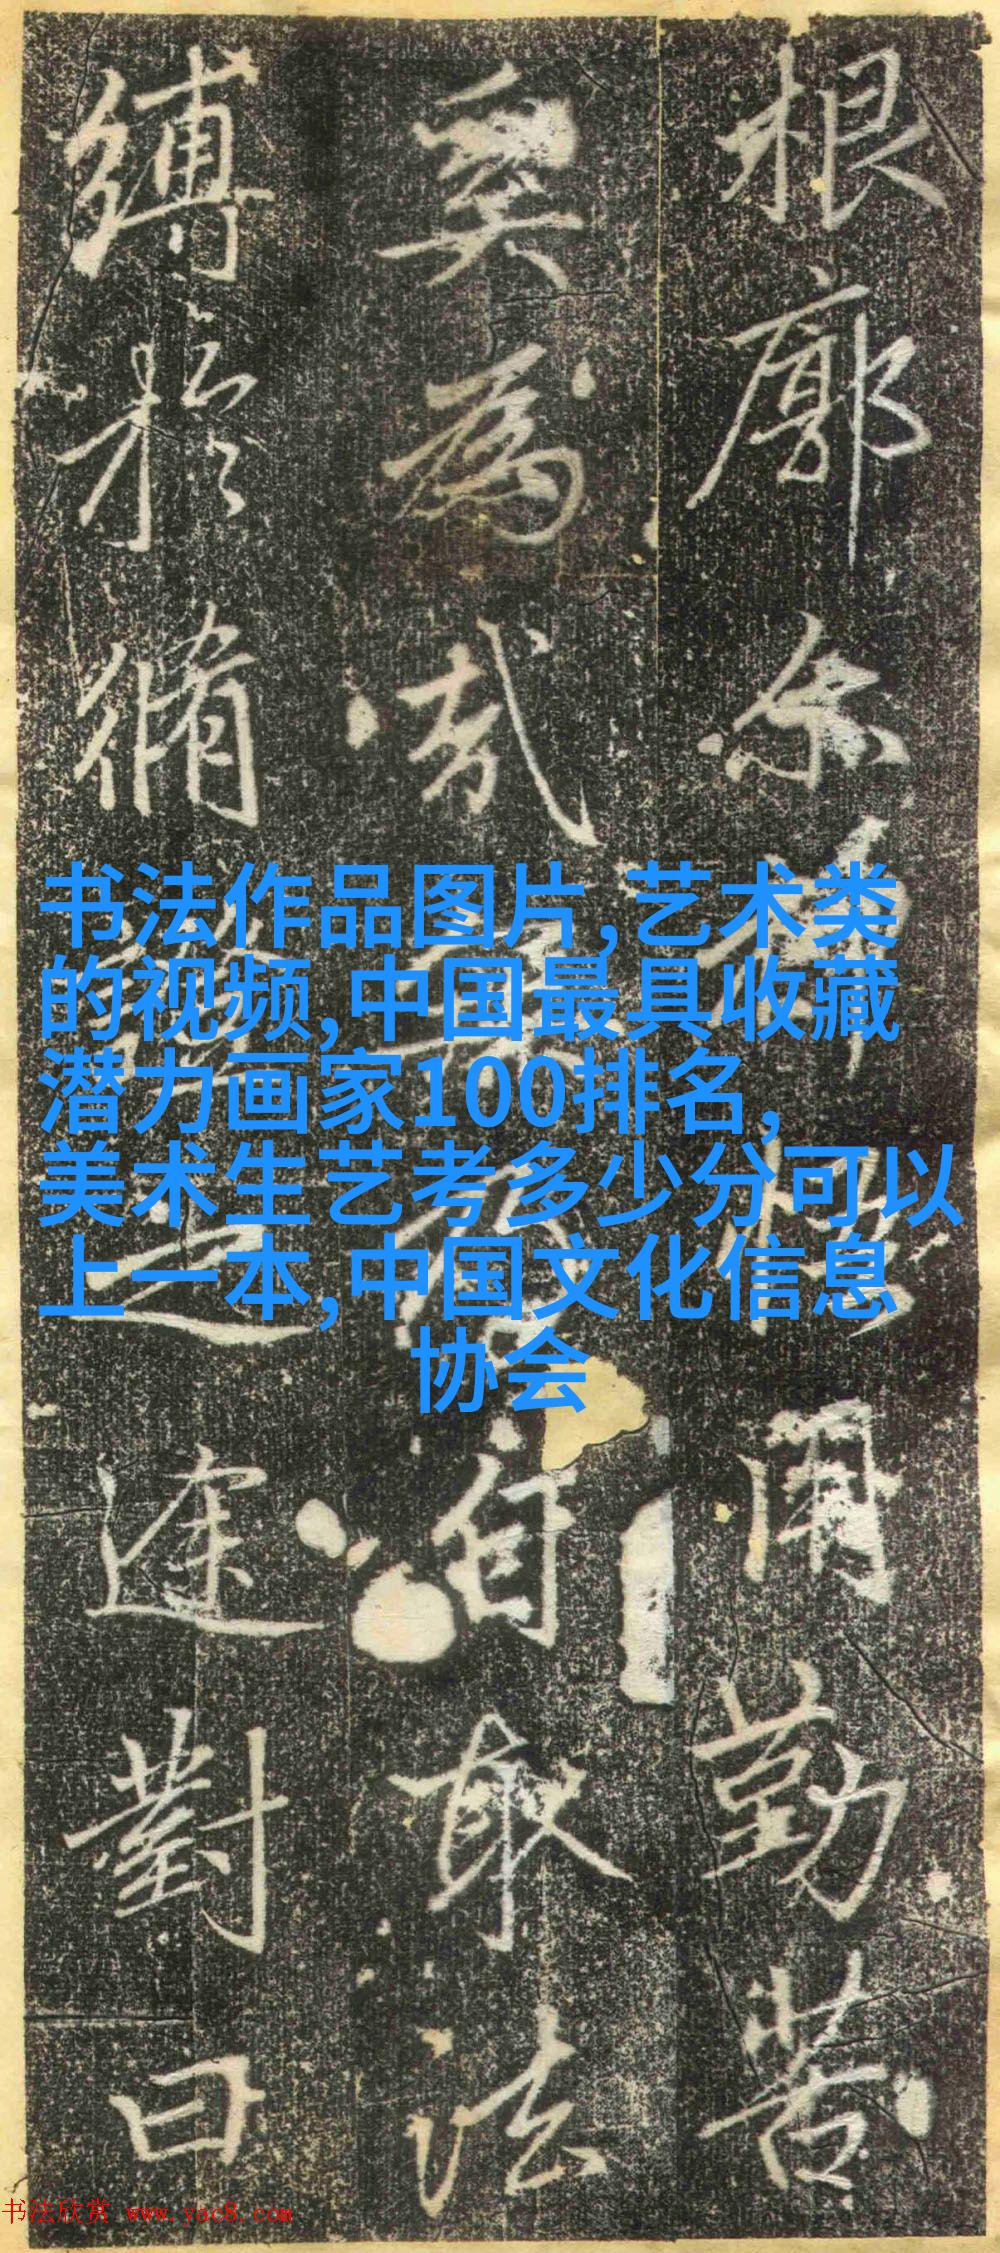 根廓尒用勤苦
奚為哉自取法
縛於脩之途對曰
书法作品图片,艺术类
的视频,中国最具收藏
潜力画家100排名,
美术生艺考多少分可以
上一本,中国文化信息
协会
书法欣赏 www.yac8.com